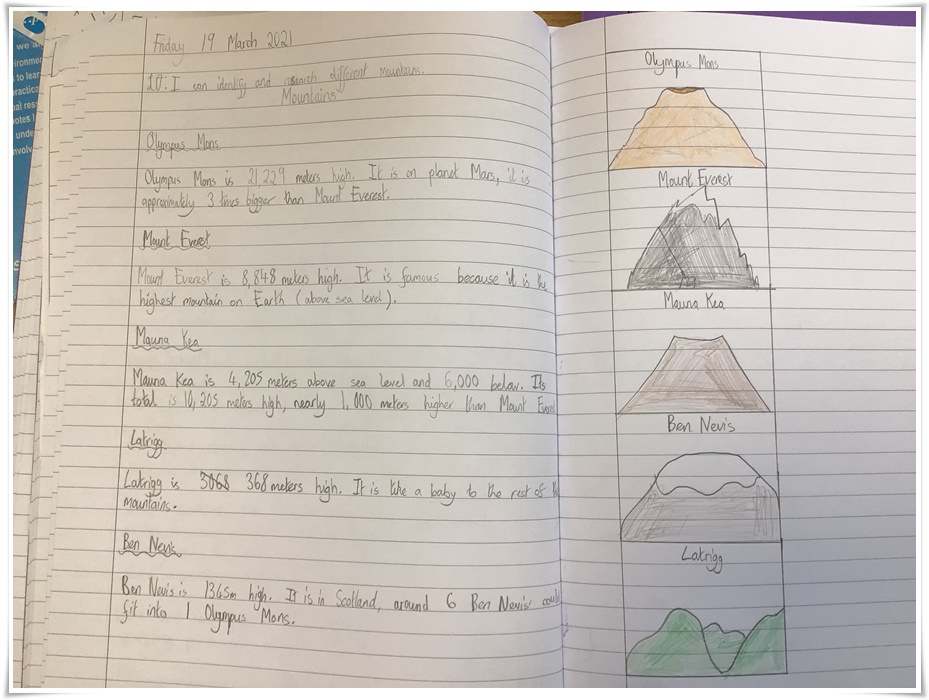 we a
ironme
to lear
practica
al res
otes
unde
nvolv
Friday 19 March 2021
LO: I can identify and research different mountains.
Mountains
Olympus Mons
Olympus Mons is 21 229 meters high. It is on planet Mars, it is
approximately 3 times bigger than Mount Everest.
Mount Everest
Mount Everest is 8,848 meters high. It is famous because it is the
highest mountain on Earth (above sea level).
Mauna Kea
Mauna Kea is 4,205 meters above sea level and 6,000 below. Its
total is 10,205 meters high, nearly 1,000 meters higher than Mount Everest
Latrigg
Latrigg is 3068 368 meters high. It is like a baby to the rest of
mountains.
Ben Nevis
Ben Nevis is 1345m high. It is in Scotland, around 6 Ben Nevis' could
fit into 1 Olympus Mons.
Olympus Mons
Mount Everest
Mauna Kea
Ben Nevis
Latrigg